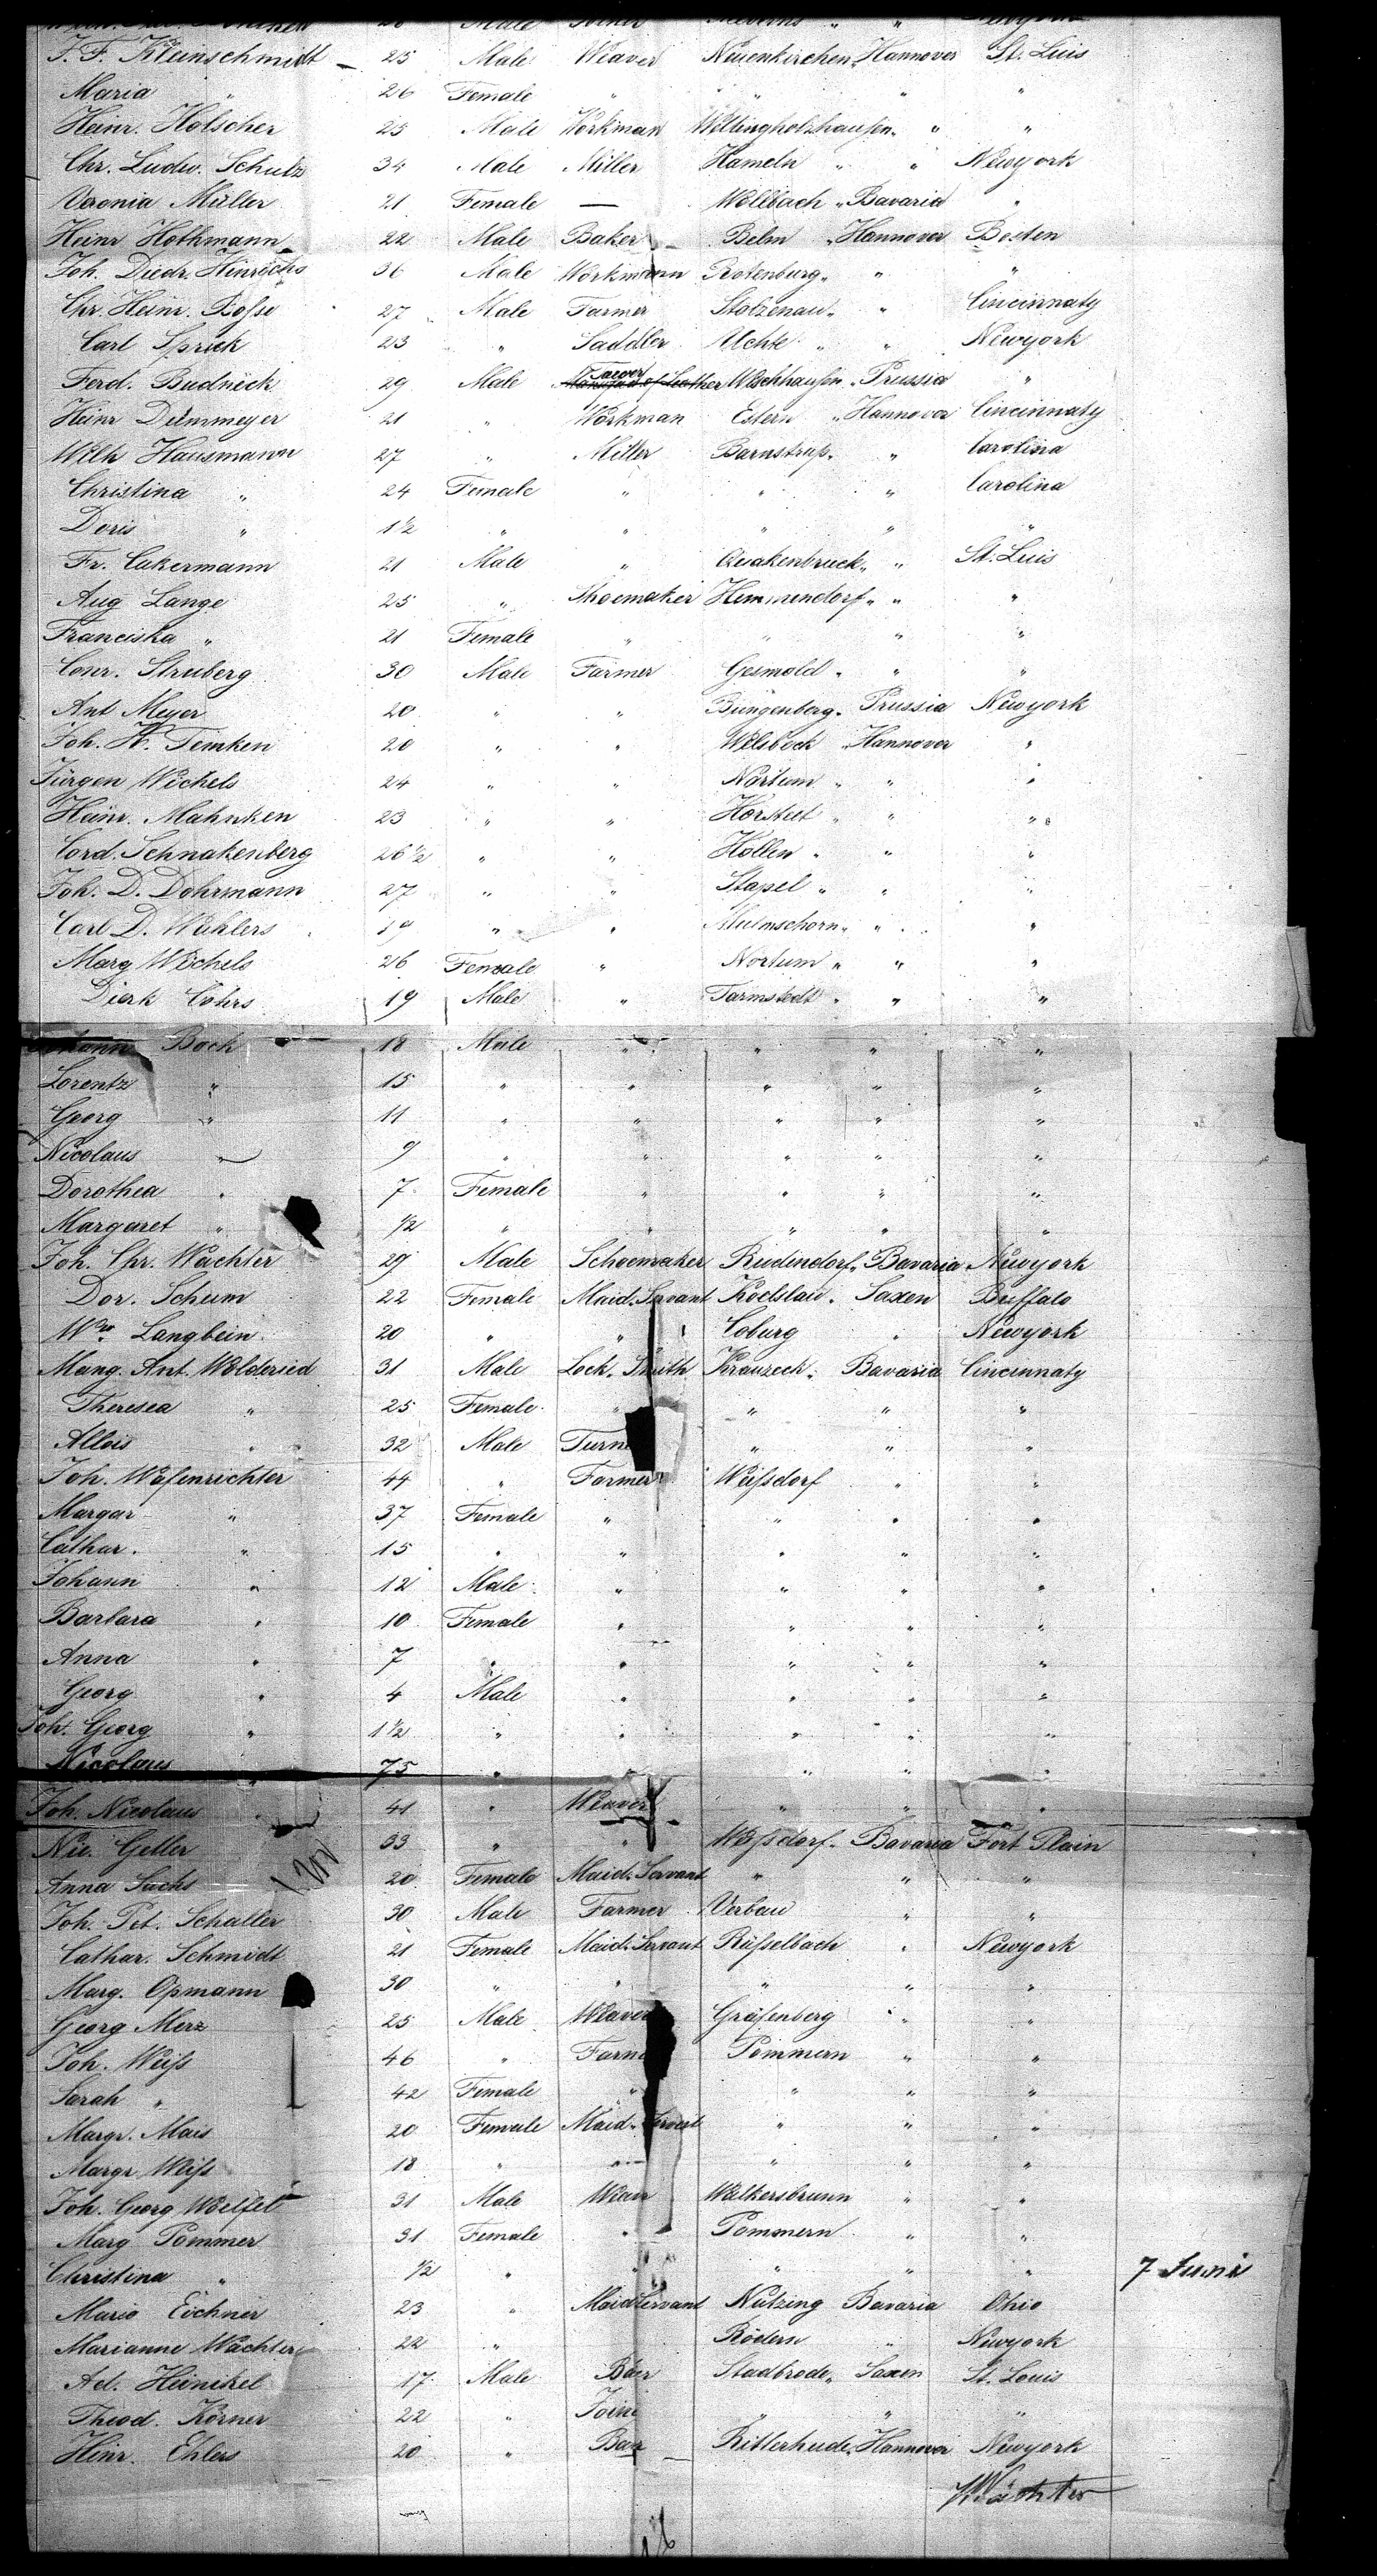 J. F. Kleinschmidt 25 Male Weaver Neuenkirchen Hannover St. Luis
Maria " 26 Female " " " "
Heinr. Holscher 25 Male Workman Wellingholzhausen " "
Chr. Ludw. Schulz 34 Male Miller Hameln " " Newyork
Veronia Müller 21 Female — Wollbach " Bavaria "
Heinr Hothmann 22 Male Baker Belm " Hannover Bosten
Joh. Diedr. Hinrichs 36 Male Workmann Rotenburg " " "
Chr. Heinr. Bosse 27 Male Farmer Stolzenau " " Cincinnaty
Carl Sprick 23 " Saddler Uchte " " Newyork
Ferd. Budnick 29 Male Wischhausen " Prussia "
Heinr 21 " Workman Estern " Hannover Cincinnaty
Wilh Hausmann 27 " Miller " " Carolina
Christina " 24 Female " " " Carolina
Doris " 1½ " " " " "
Fr. Cakermann 21 Male " Quakenbruck " " St. Luis
Aug Lange 25 " Shoemaker Hemmendorf " " "
Franciska " 21 Female " " " "
Conr. Struberg 30 Male Farmer Gesmold " " "
Ant Meyer 20 " " Büngenberg " Prussia Newyork
Joh. H. Temken 20 " " " Hannover "
Jürgen Wichels 24 " " Nartum " " "
Heinr. Mahnken 23 " " Horstedt " " "
Cord. Schnakenberg 26½ " " Hollen " " "
Joh. D. Dohrmann 27 " " Stapel " " "
Carl D. Wahlers 19 " " Mulmschorn " " "
Marg Wichels 26 Female " Nortum " " "
Dierk Cohrs 19 Male " Tarmstedt " " "
Bock 18 Male " " " "
Lorentz " 15 " " " " "
Georg " 11 " " " " "
Nicolaus " 9 " " " " "
Dorothea " 7 Female " " " "
Margaret " ½ " " " " "
Joh. Chr. Wachter 29 Male Schoemaker Rudindorf " Bavaria Newyork
Dor. Schum 22 Female Maid. Servant Saxen Buffalo
Langbein 20 " " Coburg " Newyork
Mang. Ant. Woldersed 31 Male Lock. Smith Krauzeck " Bavaria Cincinnaty
Theresea " 25 Female " " " "
Allois " 32 Male Turn " " "
Joh. Wasenrichter 44 " Farmer Weissdorf " "
Margar " 37 Female " " " "
Cathar. " 15 " " " " "
Johann " 12 Male " " " "
Barbara " 10 Female " " " "
Anna " 7 " " " " "
Georg " 4 Male " " " "
Joh. Georg " 1½ " " " " "
Nicolaus " 75 " " " " "
Joh. Nicolaus " 41 " Weaver " " "
Nic. Geller 33 " " Weissdorf " Bavaria Fort Plain
Anna Sachs 20 Female Maid. Servant " " "
Joh. Pet. Schaller 30 Male Farmer Verbau " "
Cathar. Schmidt 21 Female Maid. Servant Rüsselbach " Newyork
Marg. Opmann 30 " " " " "
Georg Merz 25 Male Weaver Gräfenberg " "
Joh. Weiss 46 " Farme Pommern " "
Sarah " 42 Female " " " "
Margr. Mais 20 Female Maid. " " "
Margr Weiss 18 " " " " "
Joh. Georg Woelfel 31 Male Walkersbrunn " "
Marg Pommer 31 Female " Pommern " "
Christina " ½ " " " " " 7 Juni
Maria Eichner 23 " Maid Servant Nutzing Bavaria Ohio
Marianne Wachter 22 " Rödern " Newyork
Ad. Heinikel 17 Male Stadbrode " Saxen St. Louis
Theod. Körner 22 " Join " " "
Heinr. Ehlers 20 " Ritterhude " Hannover Newyork
Wächter